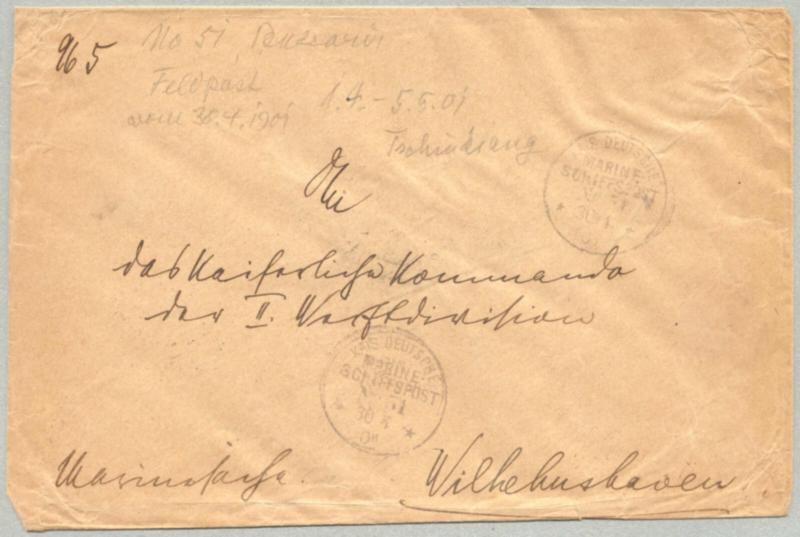 965
No 51,
Feldpost
vom 30.4.1901
1.4.-5.5.01
Tschinkiang
An
das Kaiserliche Kommando
der II. Werftdivision
Marinesache.
Wilhelmshaven.
KAIS. DEUTSCHE
MARINE-
SCHIFFSPOST
No 51
30 4
01
KAIS. DEUTSCHE
MARINE-
SCHIFFSPOST
No 51
30 4
01